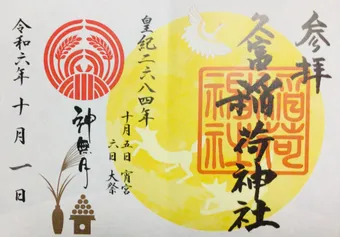 参拝
久富稲荷神社
稲荷神社
皇紀二六八四年
十月五日 宵宮
六日 大祭
神無月
令和六年 十月 一日